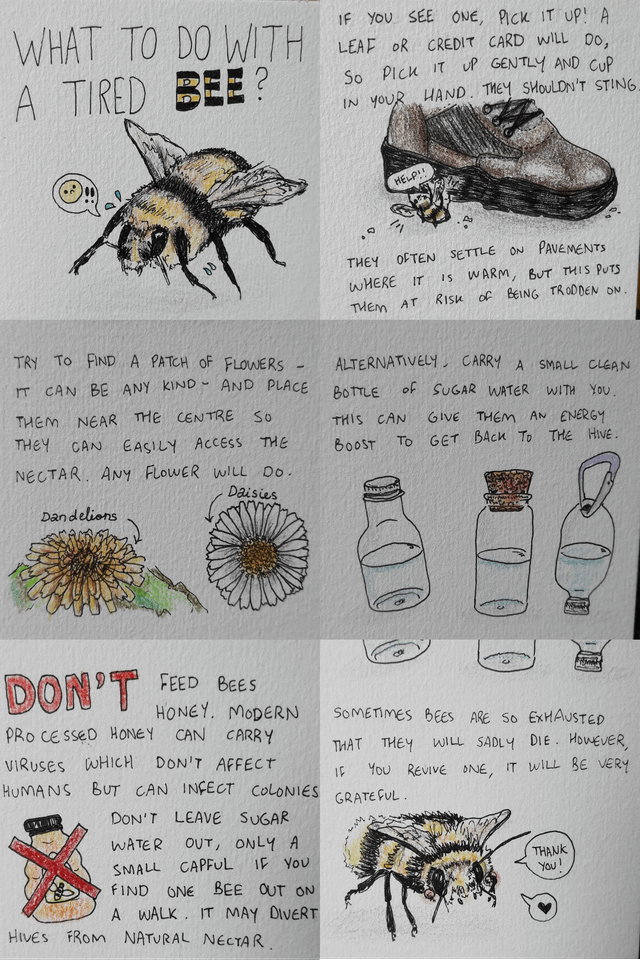 WHAT TO DO WITH
A TIRED BEE?
IF YOU SEE ONE, PICK IT UP! A
LEAF OR CREDIT CARD WILL DO,
SO PICK IT UP GENTLY AND CUP
IN YOUR HAND. THEY SHOULDN'T STING.
HELP!!
THEY OFTEN SETTLE ON PAVEMENTS
WHERE IT IS WARM, BUT THIS PUTS
THEM AT RISK OF BEING TRODDEN ON.
TRY TO FIND A PATCH OF FLOWERS -
IT CAN BE ANY KIND - AND PLACE
THEM NEAR THE CENTRE SO
THEY CAN EASILY ACCESS THE
NECTAR. ANY FLOWER WILL DO.
Dandelions
Daisies
ALTERNATIVELY, CARRY A SMALL CLEAN
BOTTLE OF SUGAR WATER WITH YOU.
THIS CAN GIVE THEM AN ENERGY
BOOST TO GET BACK TO THE HIVE.
DON'T FEED BEES
HONEY. MODERN
PROCESSED HONEY CAN CARRY
VIRUSES WHICH DON'T AFFECT
HUMANS BUT CAN INFECT COLONIES
DON'T LEAVE SUGAR
WATER OUT, ONLY A
SMALL CAPFUL IF YOU
FIND ONE BEE OUT ON
A WALK. IT MAY DIVERT
HIVES FROM NATURAL NECTAR.
SOMETIMES BEES ARE SO EXHAUSTED
THAT THEY WILL SADLY DIE. HOWEVER,
IF YOU REVIVE ONE, IT WILL BE VERY
GRATEFUL.
THANK
YOU!